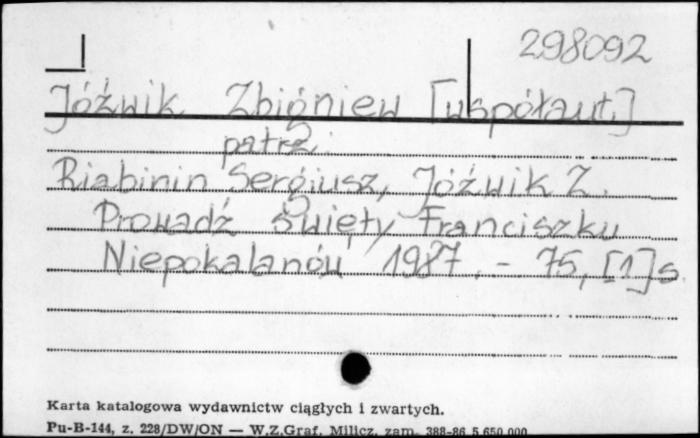 298092
Jóźwik Zbigniew [współaut.]
patrz:
Riabinin Sergiusz, Jóźwik Z.
Prowadź święty Franciszku
Niepokalanów 1987. - 75, [1] s.
Karta katalogowa wydawnictw ciągłych i zwartych.
Pu-B-144, z. 228/DW/ON — W.Z.Graf. Milicz, zam. 388-86 5.650.000